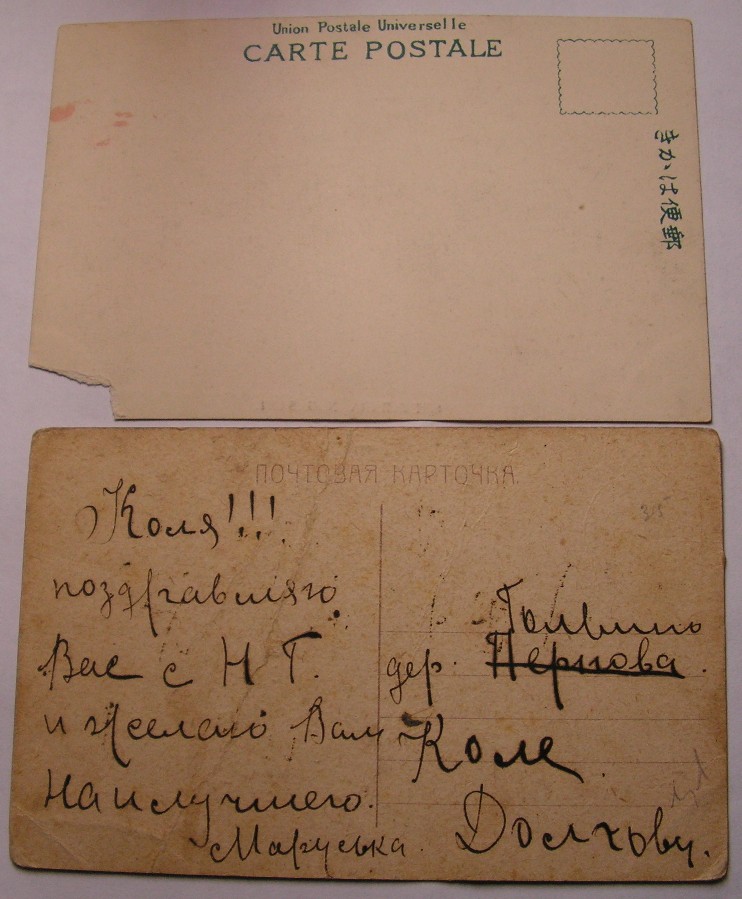 Union Postale Universelle
CARTE POSTALE
きかは便郵
ПОЧТОВАЯ КАРТОЧКА.
Коля!!!
поздравляю
Вас с Н Г.
и желаю Вам
наилучшего.
Маруська.
315
дер. Пернова.
Коле
Долгову.